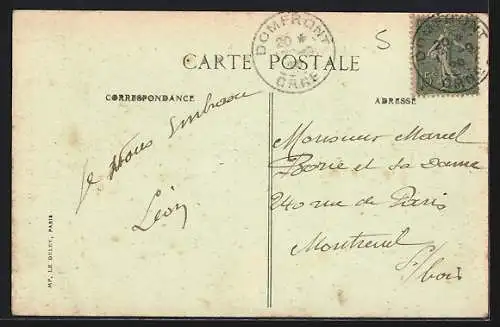 CARTE POSTALE
DOMFRONT
ORNE
5
CORRESPONDANCE
ADRESSE
Je vous embrasse
Léon
Monsieur Marcel
Borie et sa Dame
240 rue de Paris
Montreuil
s/bois
MP. LE DELEY, PARIS